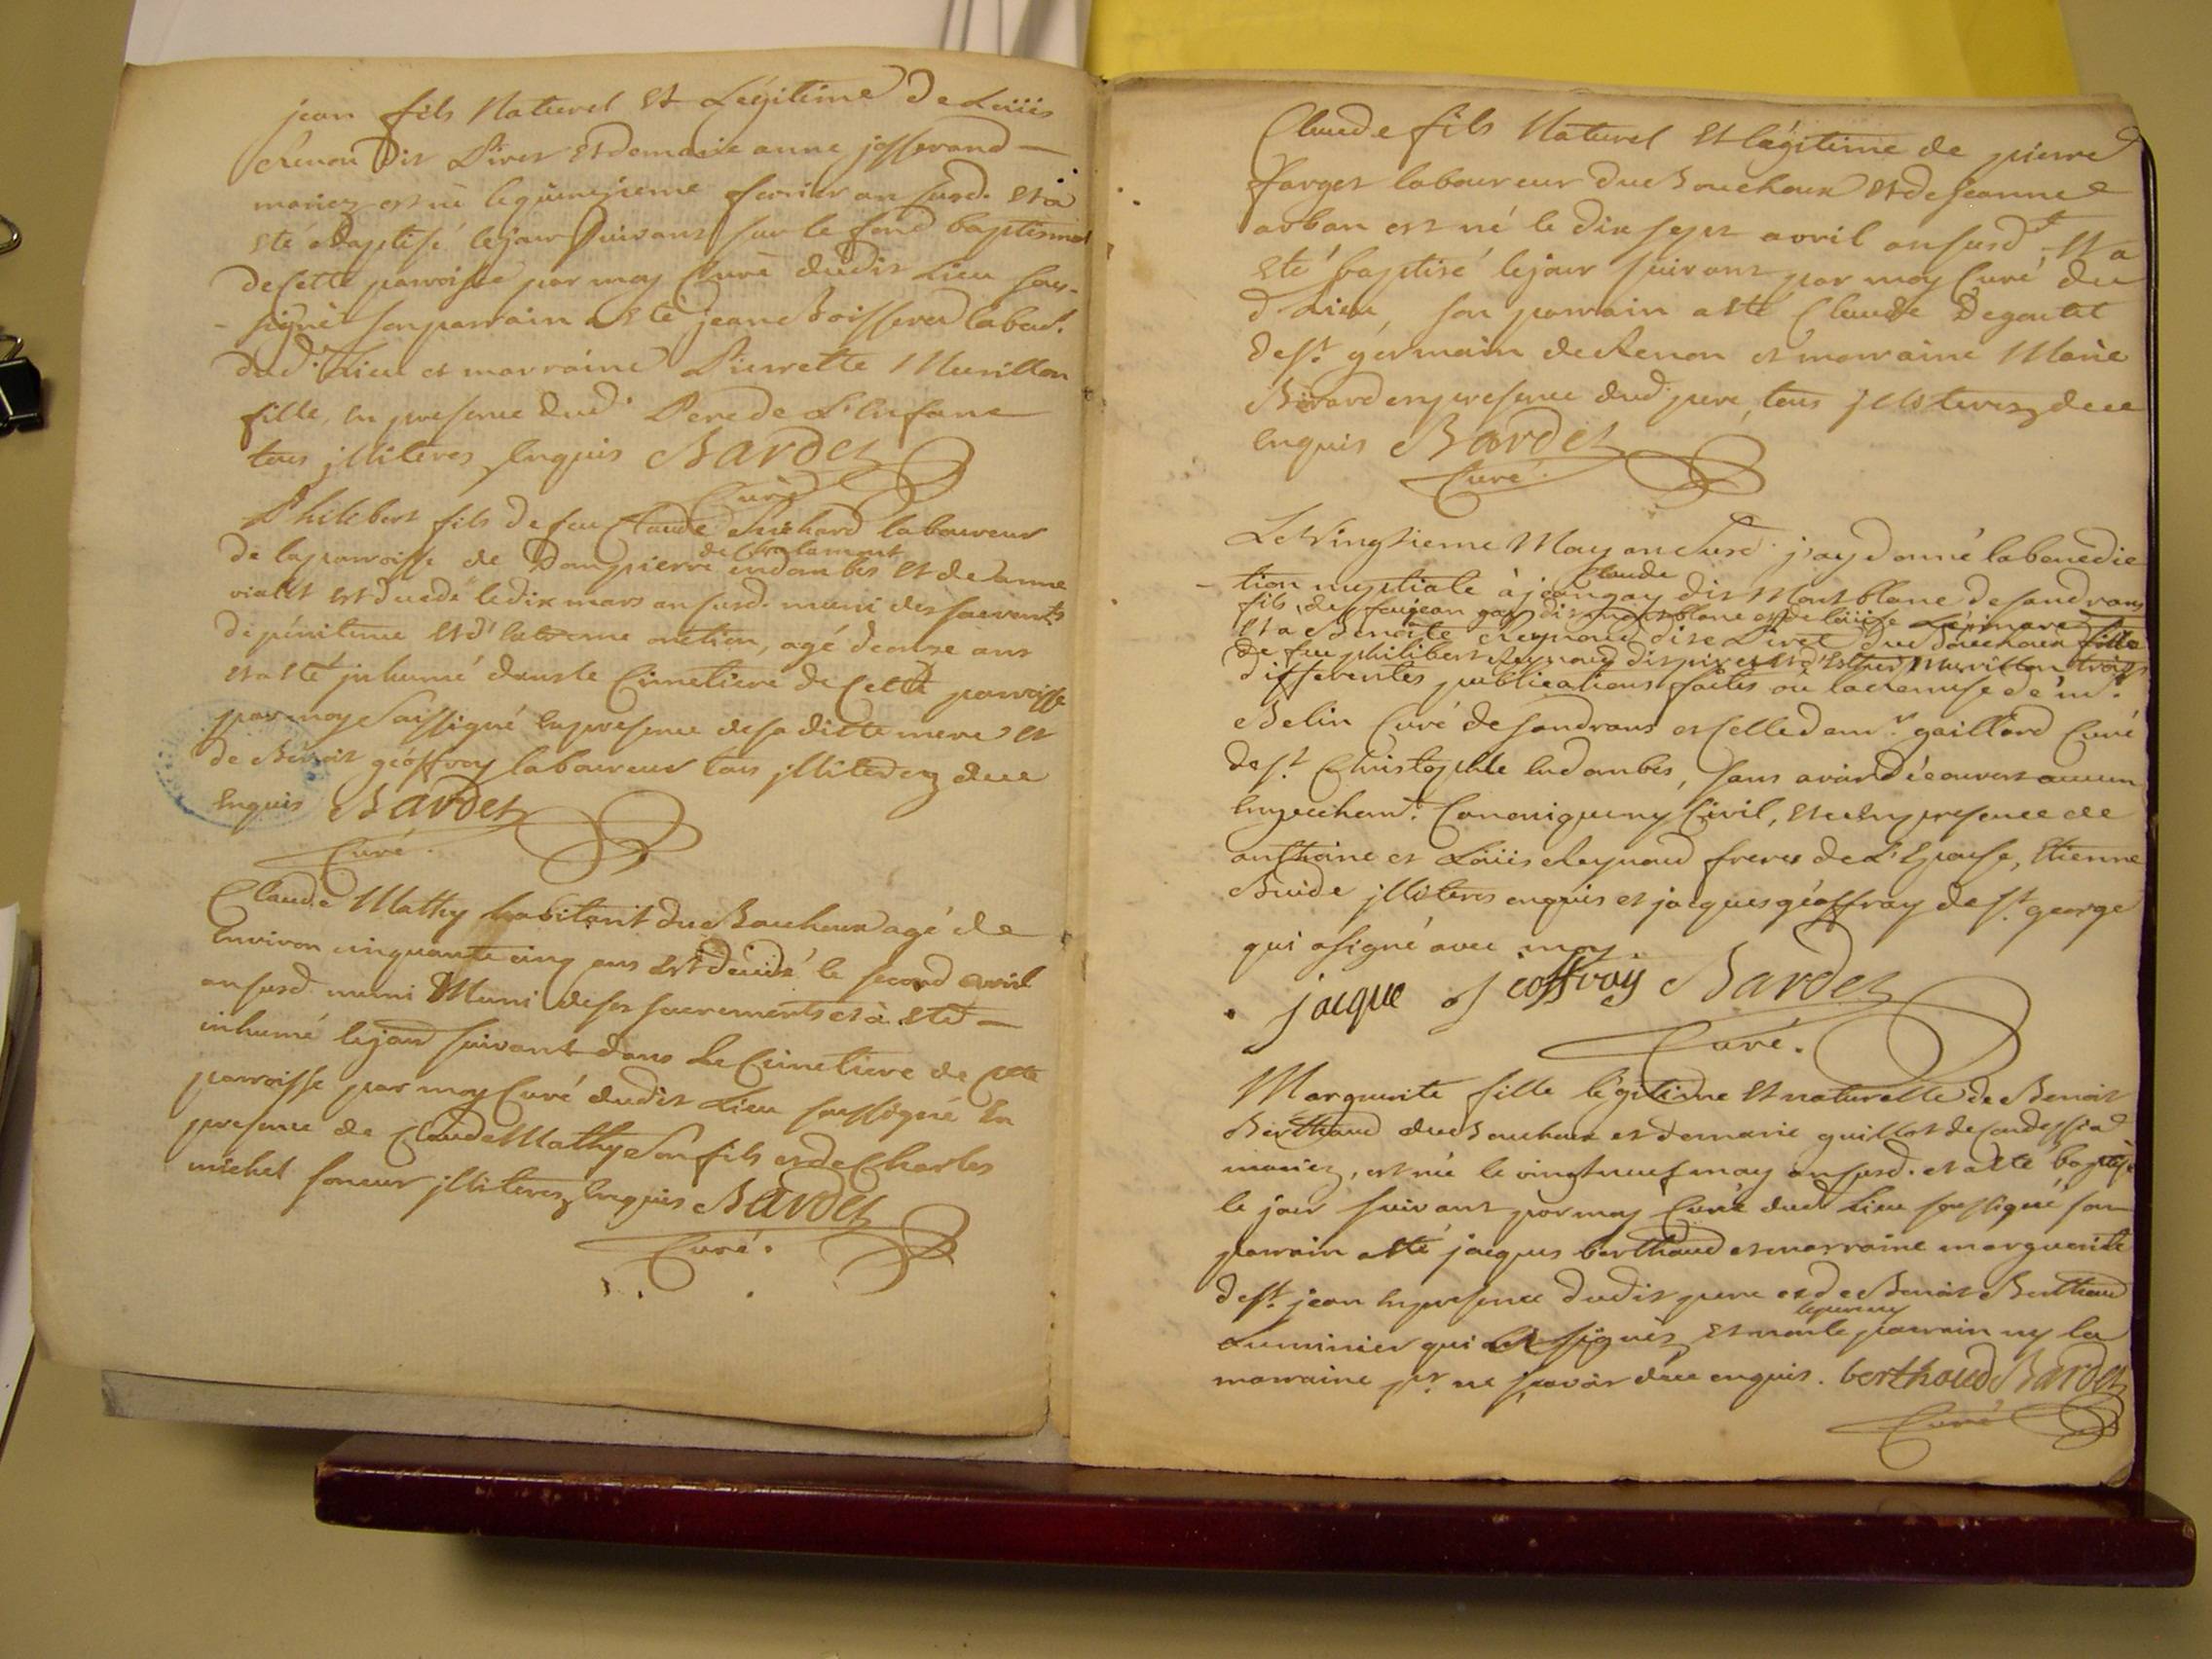 jean fils Naturel et Légitime de Loüis
Renou dit Piret et de marie anne josserand
mariez est né le quinzieme fevrier an susd. et a
eté Baptisé le jour suivant sur le fond baptismal
de Cette parroisse par moy Curé dudit Lieu sous-
signé son parrain a eté jean Boisserer labour.
dud. Lieu et marraine Pierrette Murillon
fille, en presence dud. Pere de L'enfant
tous jlliteres enquis Bardet
Curé
Philibert fils de feu Claude Suchard laboureur
de la parroisse de Dompierre de Chalamont en dombes et de anne
violet est decedé le dix mars an susd. muni des sacrements
de pénitence et d'extreme onction, agé de onze ans
et a eté inhumé dans le Cimetiere de Cette parroisse
par moy Soussigné en presence de sa ditte mere et
de Benoit géoffroy laboureur tous jlliterez de ce
enquis Bardet
Curé.
Claude Mathy habitant du Bouchoux agé de
environ cinquante cinq ans est decedé le second avril
an susd. muni Muni de ses sacrements et a eté
inhumé le jour suivant dans Le Cimetiere de cette
parroisse par moy Curé dudit Lieu soussigné en
presence de Claude Mathy son fils et de Charles
michel soneur jlliterez enquis Bardet
Curé.
Claude fils Naturel et légitime de pierre
farget laboureur du Bouchoux et de Jeanne
arban est né le dix sept avril an susd.t et a
eté baptisé le jour suivant par moy Curé du
d. Lieu, son parrain a eté Claude Degoutet
de s.t germain de Renon et marraine Marie
Birard en presence dud. pere, tous jlliterez de ce
enquis Bardet
Curé.
Le Vingtieme May an Susd. j'ay donné la benedic
tion nuptiale à jean Claude gay dit Montblanc de sandrans
fils de feu jean gay dit montblanc et de loüise
et a Benoite Reynaud dite Piret du Bouchoux fille
de feu philibert Reynaud dit piret et d'Esther Murillon trois
differentes publications faites ou la remise de m.r
Belin Curé de sandrans et Celle de m.r gaillard Curé
de s.t Christophle en dombes, sans avoir découvert aucun
empechem.t Canonique ny Civil, et ce en presence de
anthoine et Loüis Reynaud freres de L'Epouse, Etienne
Buide jlliteres enquis et jacques géoffray de s.t george
qui a signé avec moy
jacque jeoffroy Bardet
Curé.
Marguerite fille légitime et naturelle de Benoit
Berthaud du Bouchoux et de marie guillot de Condessiat
mariez, est née le vingt neuf may an susd. et a eté baptisée
le jour suivant par moy Curé dud. Lieu soussigné son
parrain a eté jacques berthaud et marraine marguerite
de s.t jean en presence dudit pere et de Benoit Berthaud
Luminier qui a signé, et non le pere ny le parrain ny la
marraine p.r ne sçavoir de ce enquis. berthoud Bardet
Curé